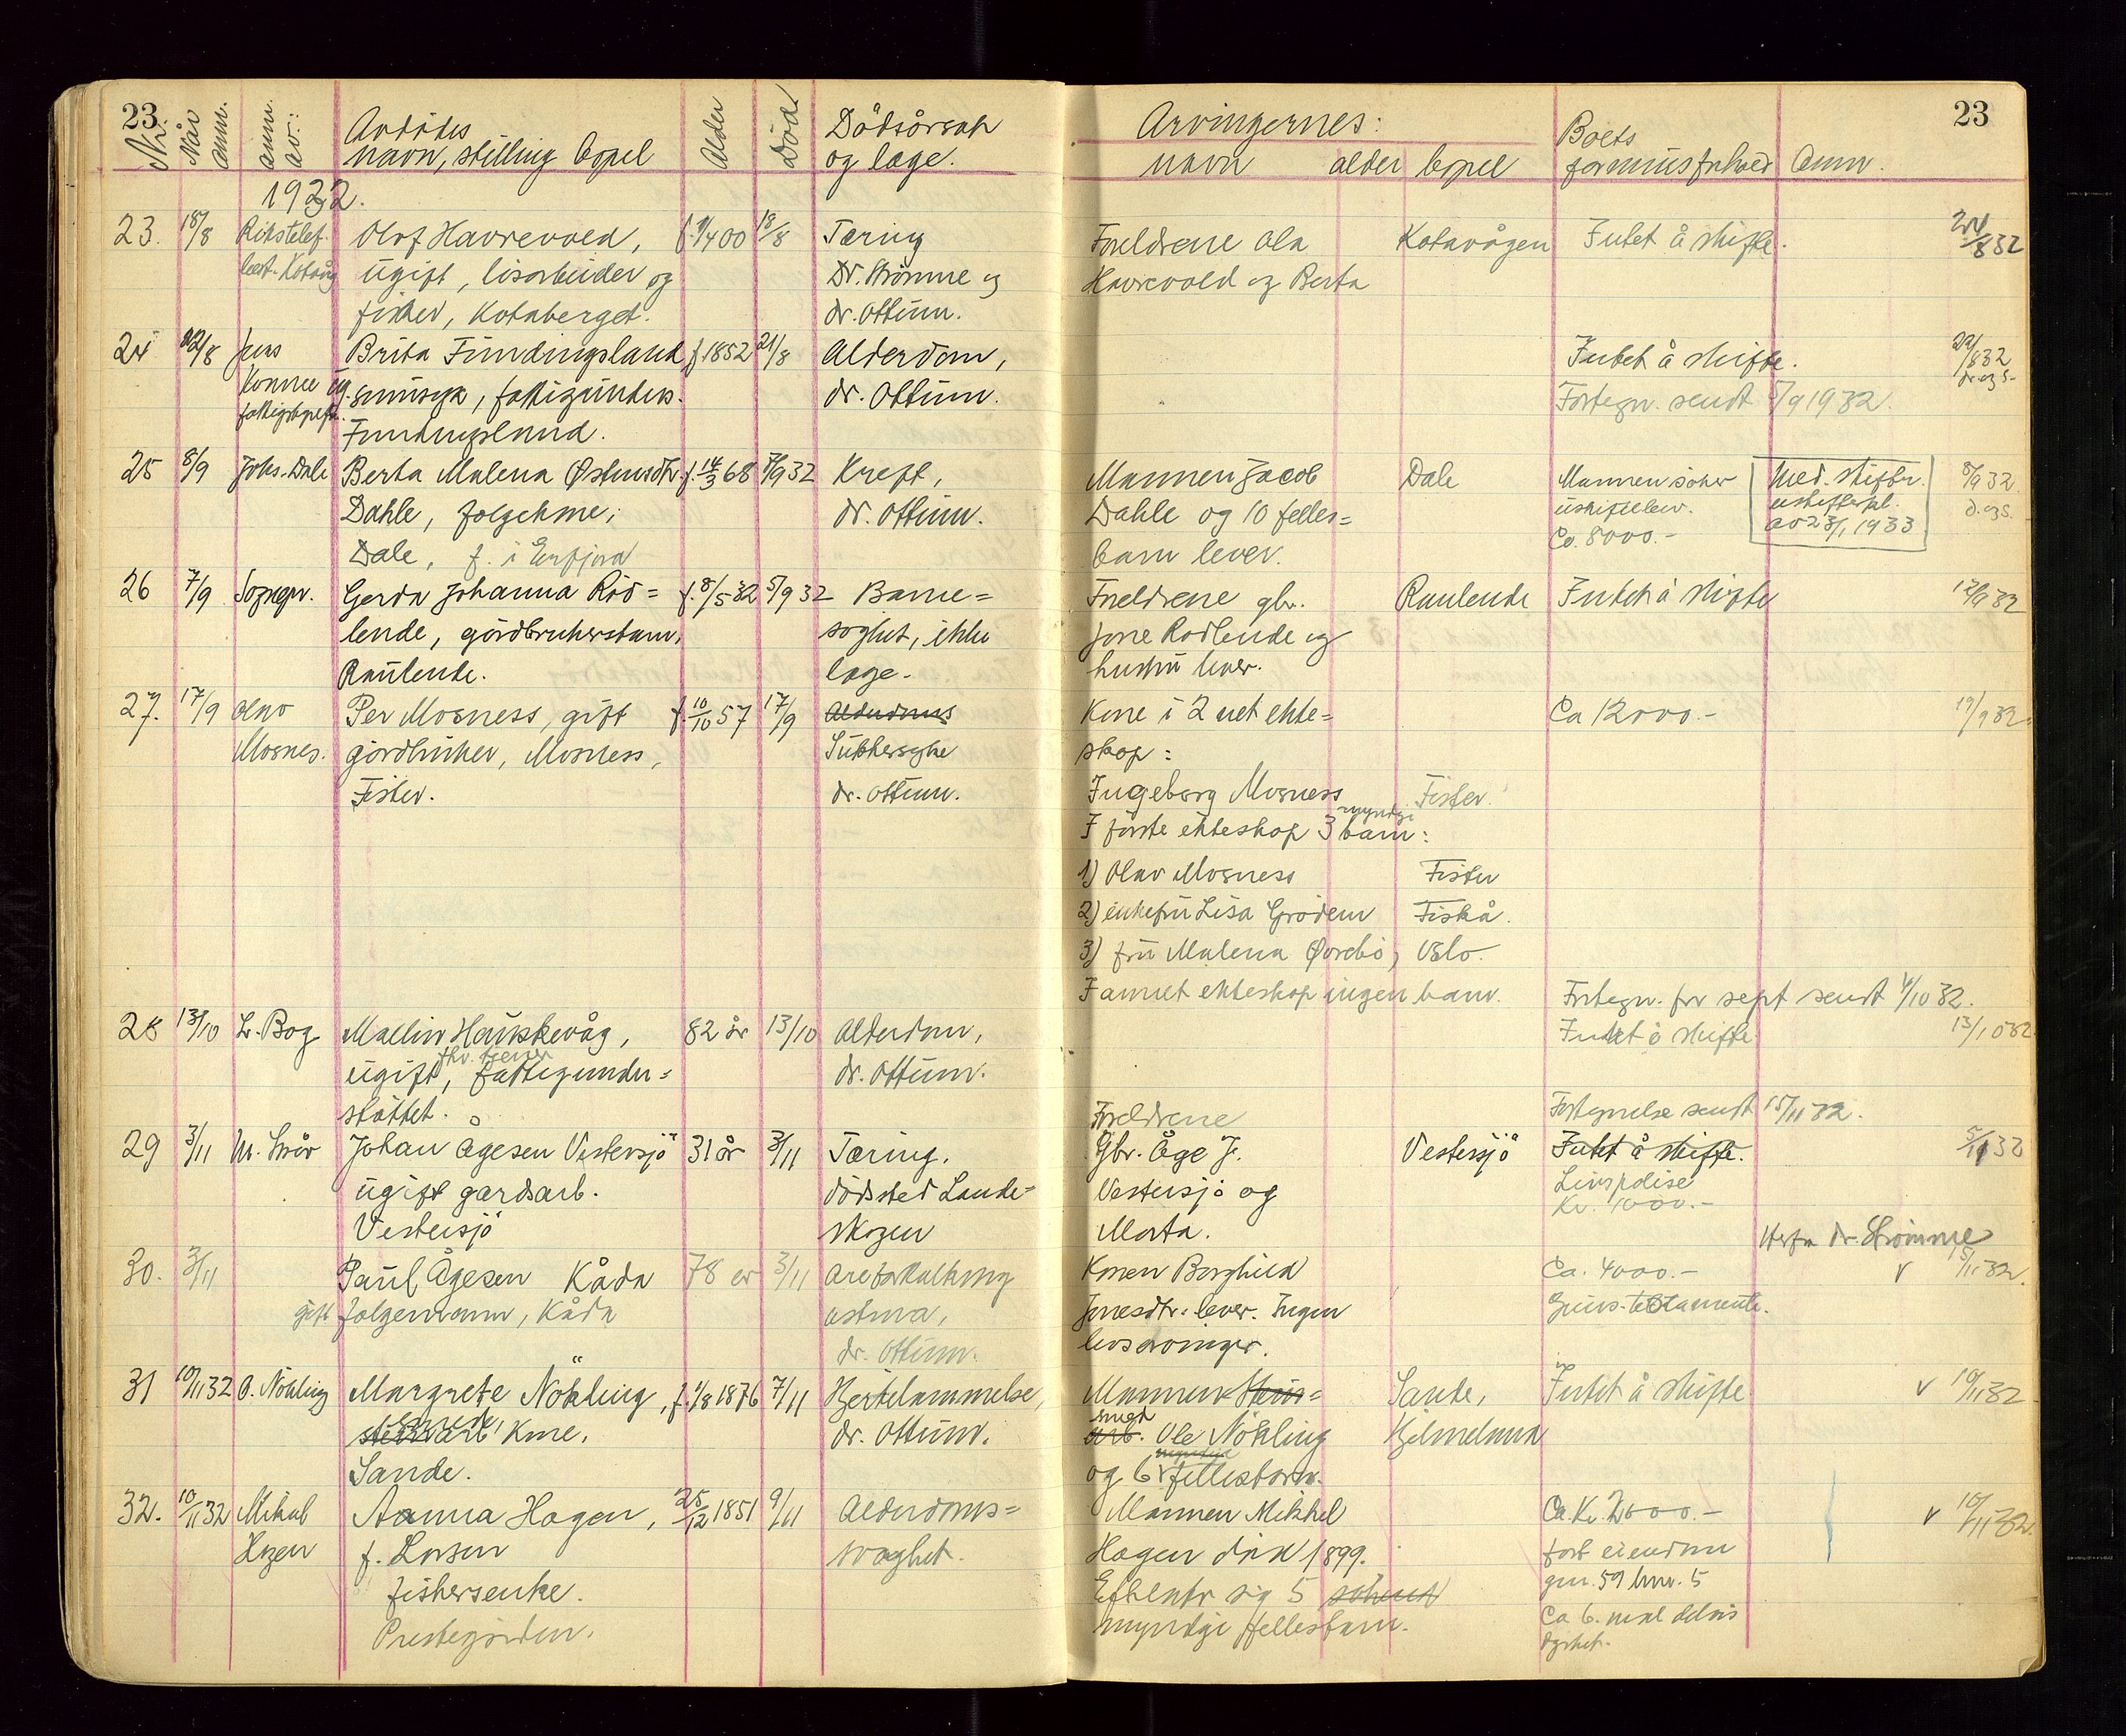 23.
Nr.
Når anm.
anm. av:
Avdødes
navn, stilling bopel
Alder
Død
Dødsårsak
og læge.
1932.
23. 18/8 Rikstelef. Olaf Havrevold, f. 9/4 00 18/8 Tæring
best. Kotvåg ugift, løsarbeider og Dr. Strömme og
fisker, Kotaberget. dr. Ottum.
24 22/8 Jens Brita Fundingsland f. 1852 21/8 Alderdom,
Konnee ug. sinnsyk, fattigunders. dr. Ottum.
fattigbestyr. Fundingsland.
25 8/9 Johs. Dale Berta Malena Østensdtr. f. 14/3 68 7/9 32 Kreft,
Dahle, folgekone, dr. Ottum.
Dale, f. i Erfjord
26 7/9 Sognepr. Gerda Johanna Röd= f. 8/5 32 5/9 32 Barne=
lende, gårdbrukerbarn, svakhet, ikke
Raulende. læge.
27. 17/9 Olav Per Mosness, gift f. 10/10 57 17/9 Alderdoms
Mosnes. gårdbruker, Mosness, Sukkersyke
Fister. dr. Ottum.
28 13/10 L. Bog Mallin Haukevåg, 82 år 13/10 Alderdom,
fhv. tjener
ugift, fattigunder= dr. Ottum.
støttet.
29 3/11 M. Svår Johan Ågesen Vestersjö 31 år 3/11 Tæring.
ugift gardsarb. dödssted Lande=
Vestersjö skogen
30. 3/11 Paul Ågesen Kåda 78 år 3/11 Åreforkalkning
gift folgemann, Kåda astma,
dr. Ottum.
31 10/11 32 O. Nökling Margrete Nökling, f. 1/8 1876 7/11 Hjertelammelse,
smed
stenarb. kone, dr. Ottum.
Sande.
32. 10/11 32 Mikal Aanna Hagen, 25/12 1851 9/11 Alderdoms=
Hagen f. Larsen svaghet.
fiskersenke.
Prestegården.
23
Arvingernes:
navn alder bopel
Boets
formuesforhold
Anm.
Foreldrene Ola Kotavågen Intet å skifte. 24/8 32
Havrevold og Berta
Intet å skifte. 22/8 32
d. o. g. s.
Fortegn. sendt 5/9 1932.
Mannen Jacob Dale Mannen söker Med. skiftn. 8/9 32
Dahle og 10 felles= uskiftebev. uskiftebevl. d. o. g. s.
barn lever. Ca. 8000.- av 23/1 1933
Foreldrene gbr. Raulende Intet å skifte 12/9 32
Jone Rødlende og
hustru lever.
Kone i 2net ekte= Ca 12000.- 19/9 32
skap:
Ingeborg Mosness Fister.
myndige
I første ekteskap 3 barn:
1) Olav Mosness Fister
2) enkefru Lisa Grödem Fiskå.
3) fru Malena Øvrebö, Oslo.
I annet ekteskap ingen barn. Fortegn. for sept sendt 4/10 32.
Intet å skifte 13/10 32
Fortegnelse sendt 15/11 32.
Foreldrene
Gbr. Åge J. Vestersjö Intet å skifte. 5/11 32
Vestersjö og Livspolise
Marta. Kr. 1000.-
Herfra dr. Strömme
Konen Borghild Ca. 4000.- v 15/11 32.
Jonesdtr. lever. Ingen Gjens. testamente.
livsarvinger.
Mannen Sten= Sande, Intet å skifte v 10/11 32
smed
arb. Ole Nökling Hjelmeland
myndige
og 6 fellesbarn.
Mannen Mikkel Ca. Kr. 2000.- v 10/11 32.
Hagen död 1899. fast eiendom
Efterlater sig 5 söken gnr. 59 bnr. 5
myndige fellesbarn. Ca 6. mål delvis
dyrket.